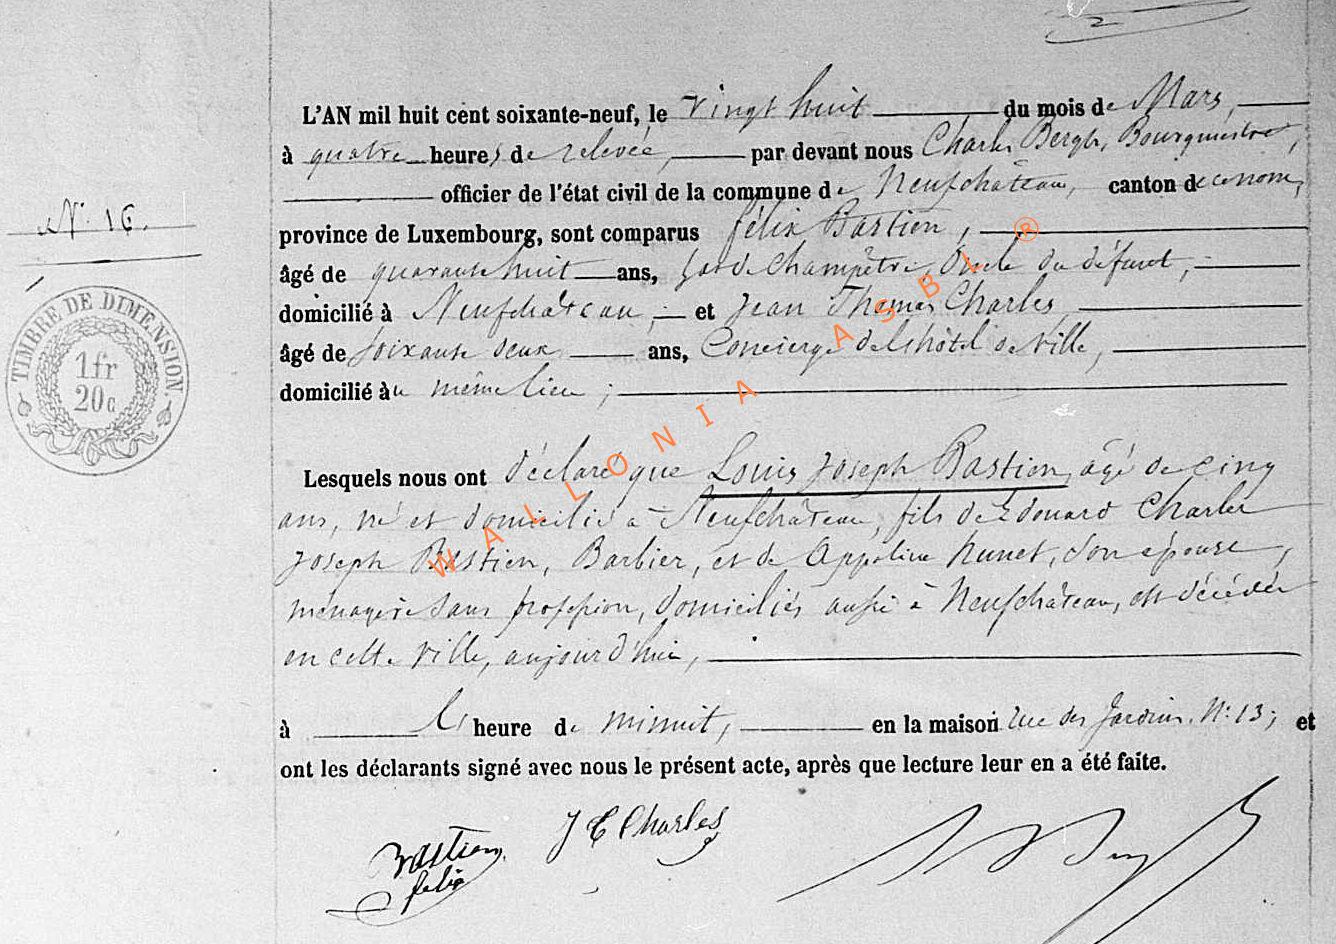 2
L'AN mil huit cent soixante-neuf, le vingt huit du mois de Mars,
à quatre heures de relevée, par devant nous Charles Bergh, Bourgmestre,
officier de l'état civil de la commune de Neufchâteau, canton de ce nom,
N° 16.
province de Luxembourg, sont comparus Félix Bastien,
âgé de quarante huit ans, garde Champêtre, Oncle du défunt,
domicilié à Neufchâteau, et Jean Thomas Charles,
âgé de soixante deux ans, Concierge de l'hôtel de Ville,
domicilié au même lieu ;
TIMBRE DE DIMENSION.
1fr
20c
Lesquels nous ont déclaré que Louis Joseph Bastien, âgé de cinq
ans, né et domicilié à Neufchâteau, fils de Edouard Charles
Joseph Bastien, Barbier, et de Appoline Hunet, son épouse,
ménagère sans profession, domiciliés aussi à Neufchâteau, est décédé
en cette ville, aujourd'hui,
à l' heure de minuit, en la maison rue des Jardins, N° 13; et
ont les déclarants signé avec nous le présent acte, après que lecture leur en a été faite.
Bastien
felix
J T Charles
WALLONIA ASBL ®